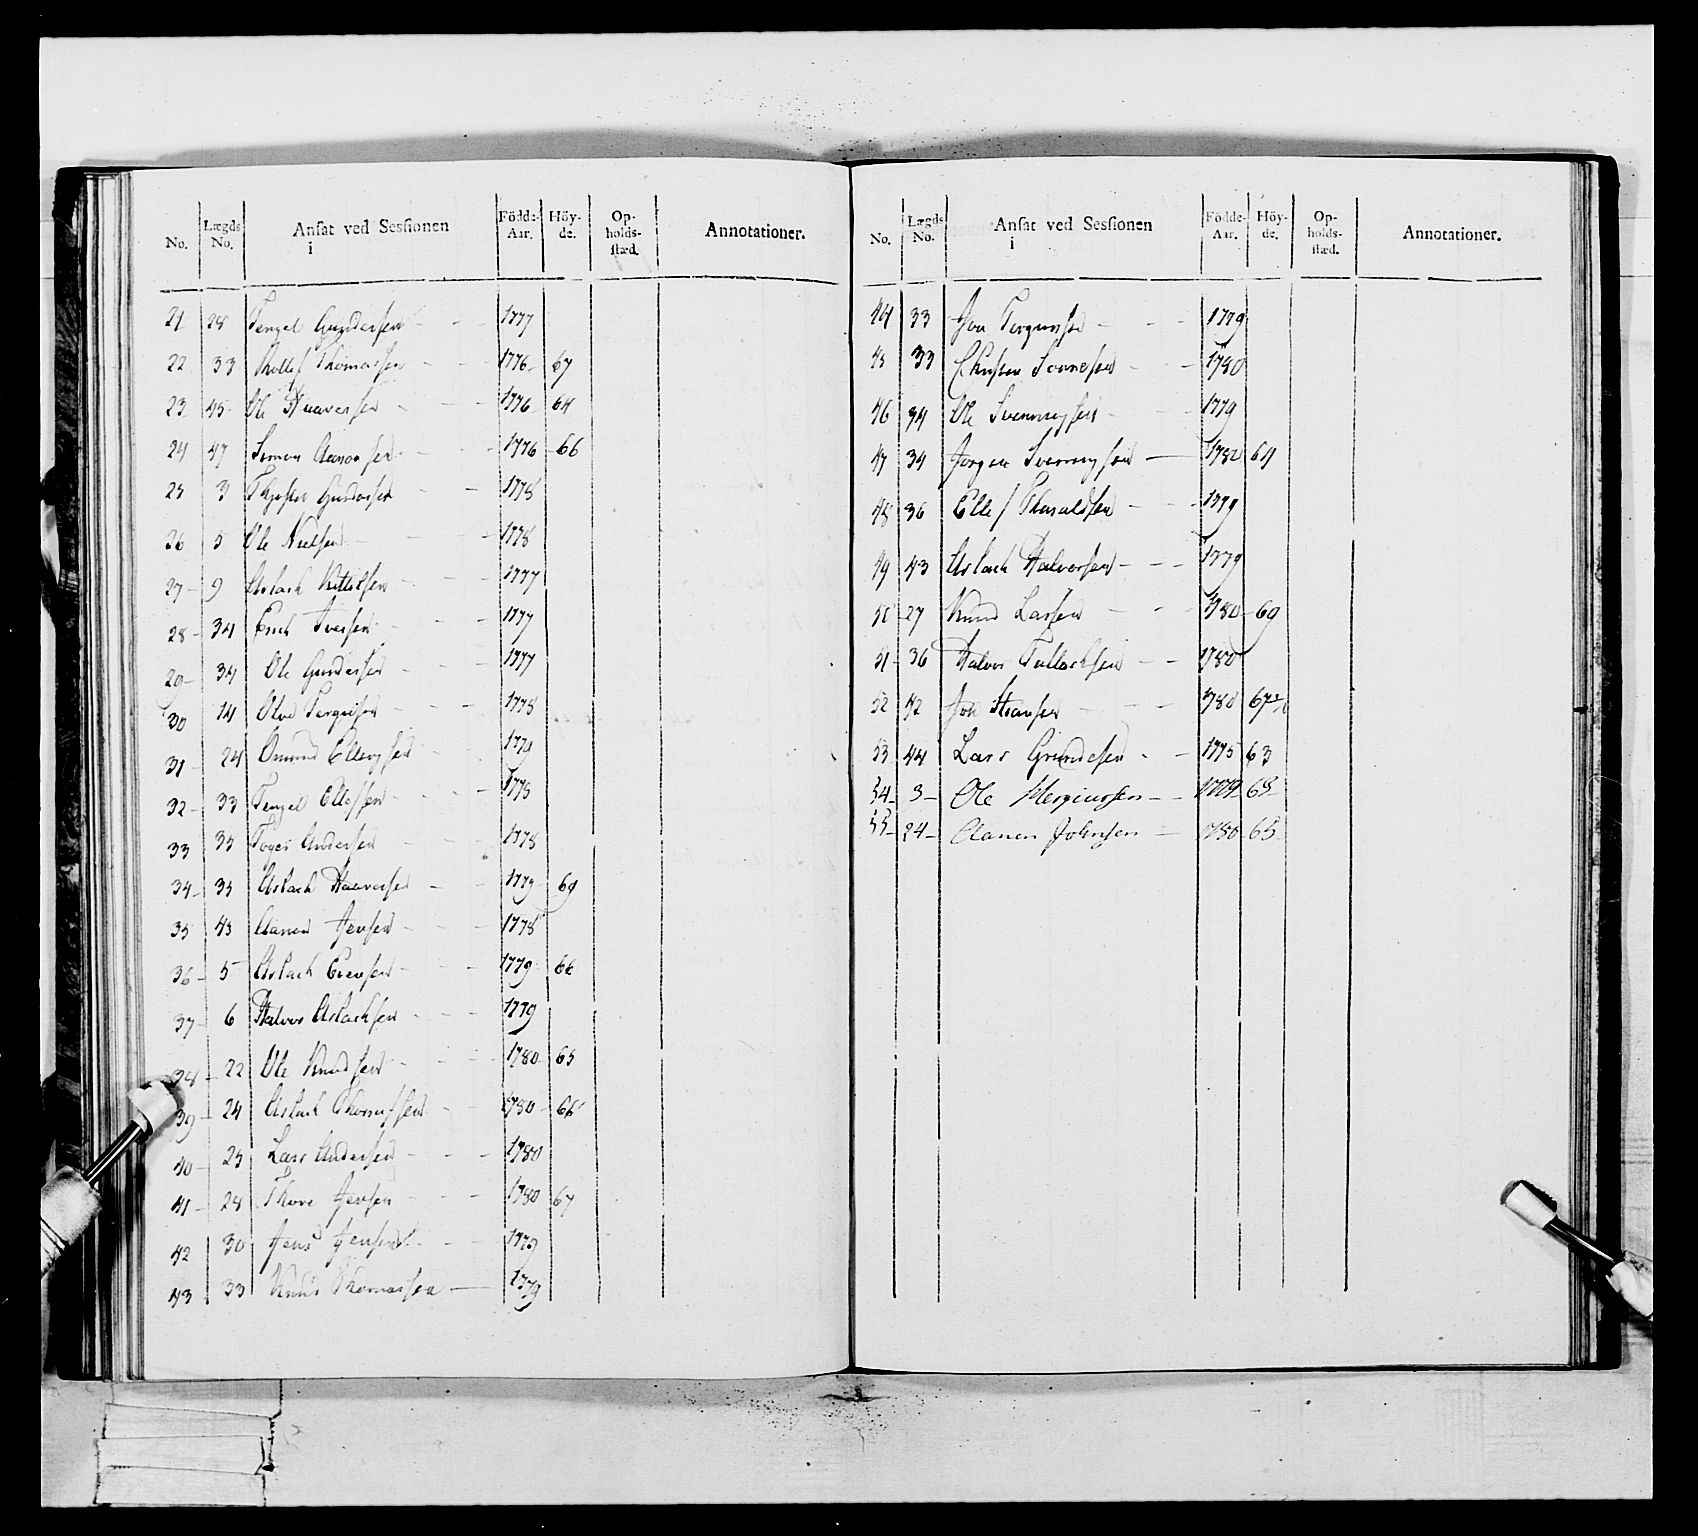 No. Lægds No. Ansat ved Sessionen i Födde-Aar. Höy-de. Op-holds-stæd. Annotationer.
21 28 Tengel Gundersen 1777
22 33 Thomassen 1776 67
23 45 Ole Haaversen 1776 64
24 47 Simon Aanonsen 1776 66
25 3 Gundersen 1778
26 5 Ole Nielsen 1778
27 9 Aslach Kittelsen 1777
28 34 Erich Iversen 1777
29 34 Ole Gundersen 1777
30 14 Olve Tergeisen 1778
31 24 Omund Ellevsen 1779
32 33 Tengel Ellefsen 1778
33 35 Andersen 1778
34 35 Aslach Haaversen 1779 69
35 43 Aanon Jensen 1778
36 5 Aslach Evensen 1779 66
37 6 Halvor Aslachsen 1779
38 22 Ole Knudsen 1780 65
39 24 Aslach Thomassen 1780 66
40 25 Lars Andersen 1780
41 28 Thore Jensen 1780 67
42 30 Jens Jensen 1779
43 33 Knud Thomassen 1779
No. Lægds No. Ansat ved Sessionen i Födde-Aar. Höy-de. Op-holds-stæd. Annotationer.
44 33 Jon 1779
45 33 Christen 1780
46 34 Ole Svennungsen 1779
47 34 Jörgen Svennungsen 1780 64
48 36 Ellef Tharaldsen 1779
49 43 Aslach Halvorsen 1779
50 27 Knud Larsen 1780 69
51 36 Halvor Tallachsen 1780
52 42 Jon Hansen 1780 67½
53 44 Lars Gundersen 1775 63
54 3 Ole 1779 65
55 24 Aanen Johnsen 1780 65